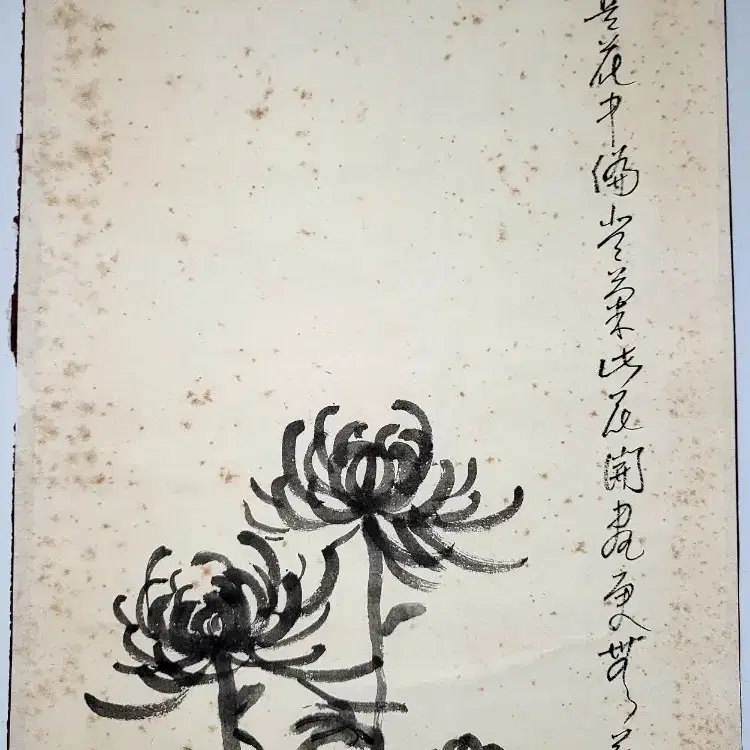 是花中偏愛菊此花開盡更無